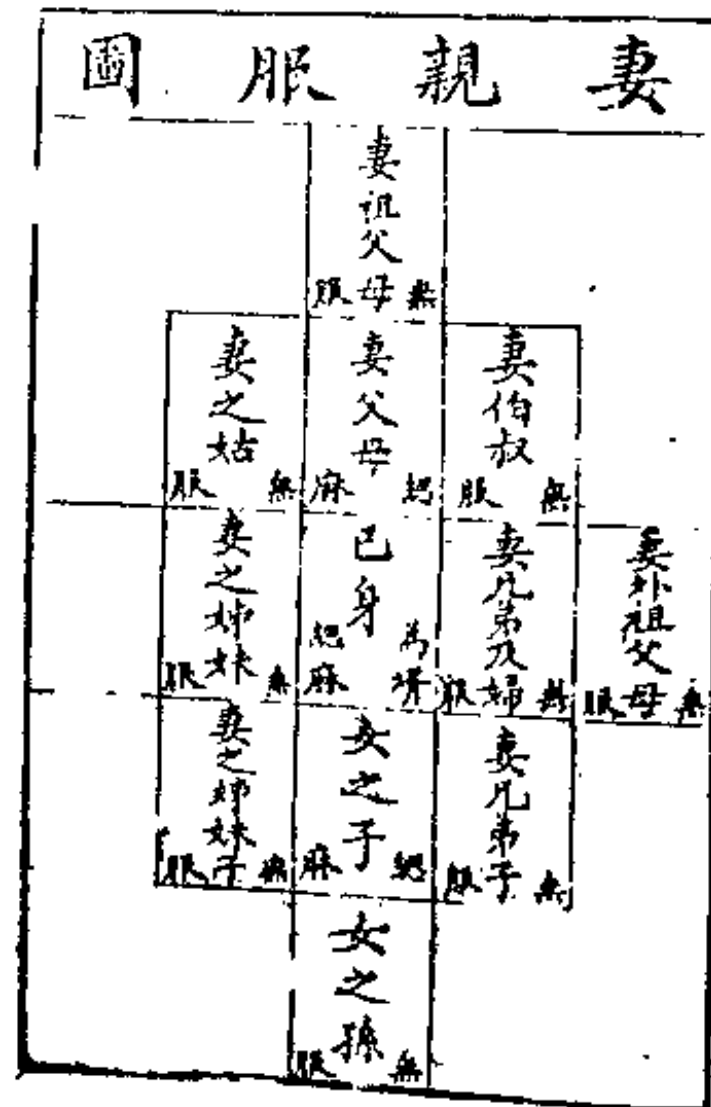 妻親服圖
妻祖父母
無服
妻伯叔
無服
妻父母
緦麻
妻之姑
無服
妻外祖父母
無服
妻兄弟及婦
無服
己身
為壻緦麻
妻之姊妹
無服
妻兄弟子
無服
女之子
緦麻
妻之姊妹子
無服
女之孫
無服